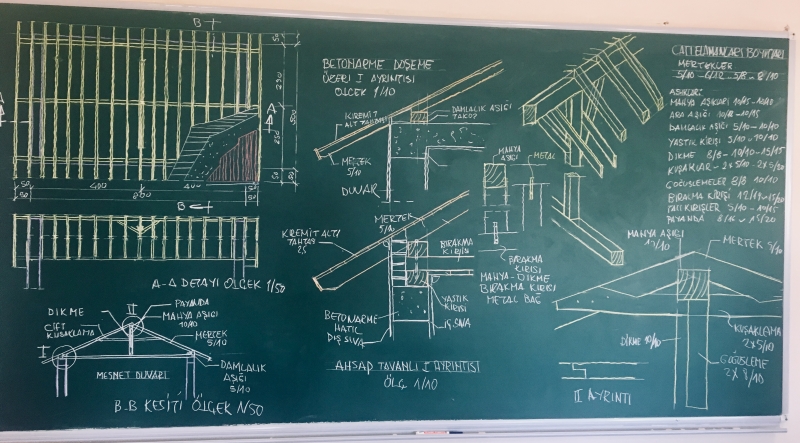 B
50
290
A
A
250
50
50
400
400
50
800
B
A-A DETAYI ÖLÇEK 1/50
DİKME
ÇİFT
KUŞAKLAMA
II
PAYANDA
MAHYA AŞIĞI
10/10
MERTEK
5/10
I
MESNET DUVARI
DAMLALIK
AŞIĞI
5/10
B-B KESİTİ ÖLÇEK 1/50
BETONARME DÖŞEME
ÜZERİ I AYRINTISI
ÖLÇEK 1/10
KİREMİT
ALT TAHTASI
DAMLALIK AŞIĞI
TAKOZ
MERTEK
5/10
DUVAR
MAHYA
AŞIĞI
METAL
BIRAKMA
KİRİŞİ
MAHYA-DİKME
BIRAKMA KİRİŞİ
METAL BAĞ
KİREMİT ALTI
TAHTASI
2,5
MERTEK
5/10
BIRAKMA
KİRİŞİ
YASTIK
KİRİŞİ
BETONARME
HATIL
DIŞ SIVA
İÇ SIVA
AHŞAP TAVANLI I AYRINTISI
ÖLÇ 1/10
ÇATI ELEMANLARI BOYUTLARI
MERTEKLER
AŞIKLAR:
MAHYA AŞIKLARI 10/15-10/10
ARA AŞIĞI 10/8-10/15
DAMLALIK AŞIĞI 5/10-10/10
YASTIK KİRİŞİ 5/10-10/10
DİKME 8/8-10/10-15/15
KUŞAKLAR-2x5/10-2x5/20
GÖĞÜSLEMELER 8/8 10/10
BIRAKMA KİRİŞİ
TALİ KİRİŞLER 5/10-10/15
PAYANDA 8/16-15/20
MAHYA AŞIĞI
MERTEK 5/10
DİKME 10/10
KUŞAKLAMA
2x5/10
GÖĞÜSLEME
2x8/10
II AYRINTI